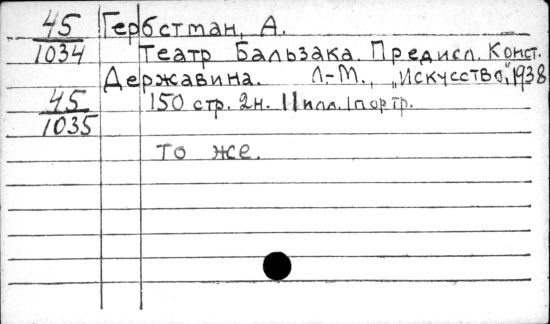 45 Гербстман, А.
1034 Театр Бальзака. Предисл. Конст.
Державина. Л-М., „Искусство", 1938
45 150 стр. 2н. 11 илл. 1 портр.
1035
то же.